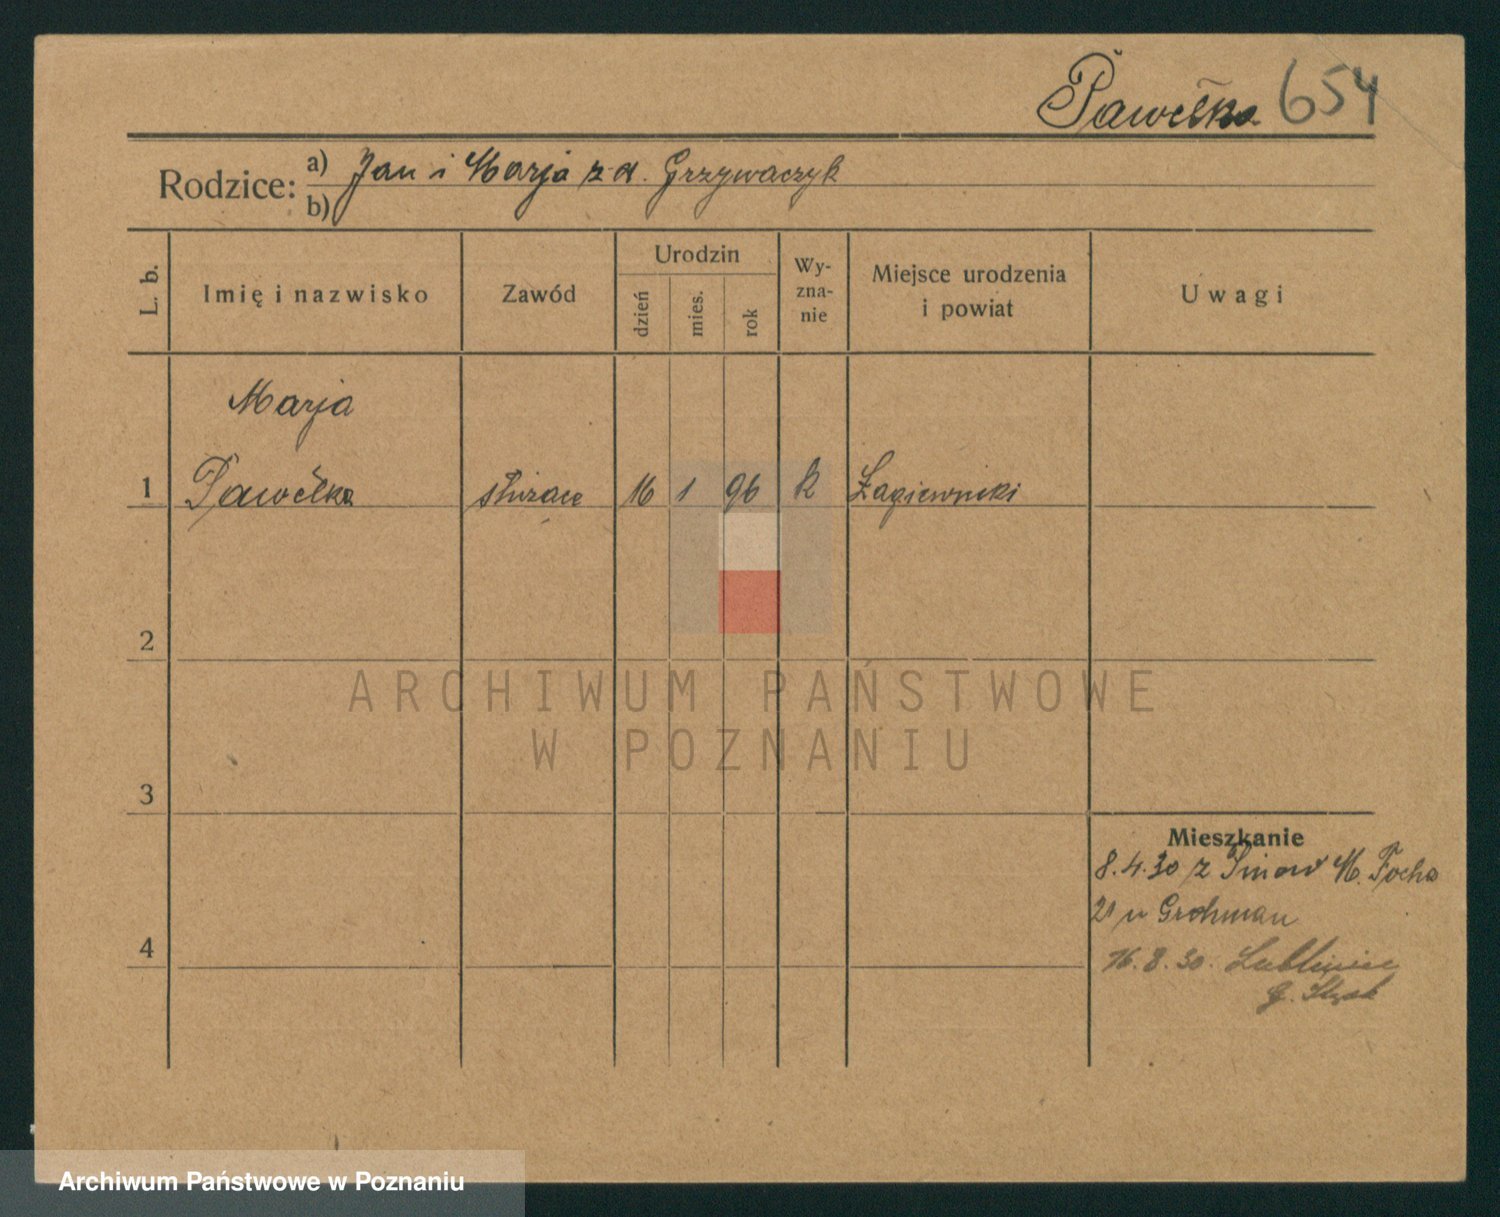 Pawełka 654
Rodzice: a) Jan i Marja z d. Grzywaczyk
b)
L. b.
Imię i nazwisko
Zawód
Urodzin
dzień
mies.
rok
Wy-
zna-
nie
Miejsce urodzenia
i powiat
Uwagi
Marja
1 Pawełka służące 16 1 96 k Łagiewniki
2
3
4
Mieszkanie
8.4.30 z M. Focha
21 u Grohman
16.8.30. Lubliniec
G. Śląsk
ARCHIWUM PAŃSTWOWE
W POZNANIU
Archiwum Państwowe w Poznaniu